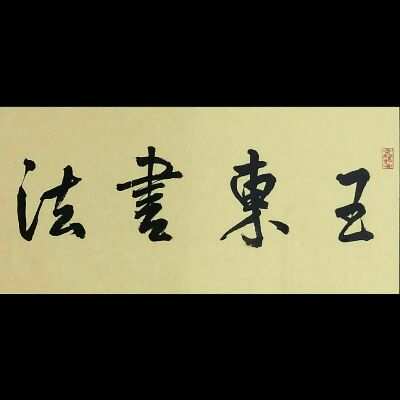 王東書法